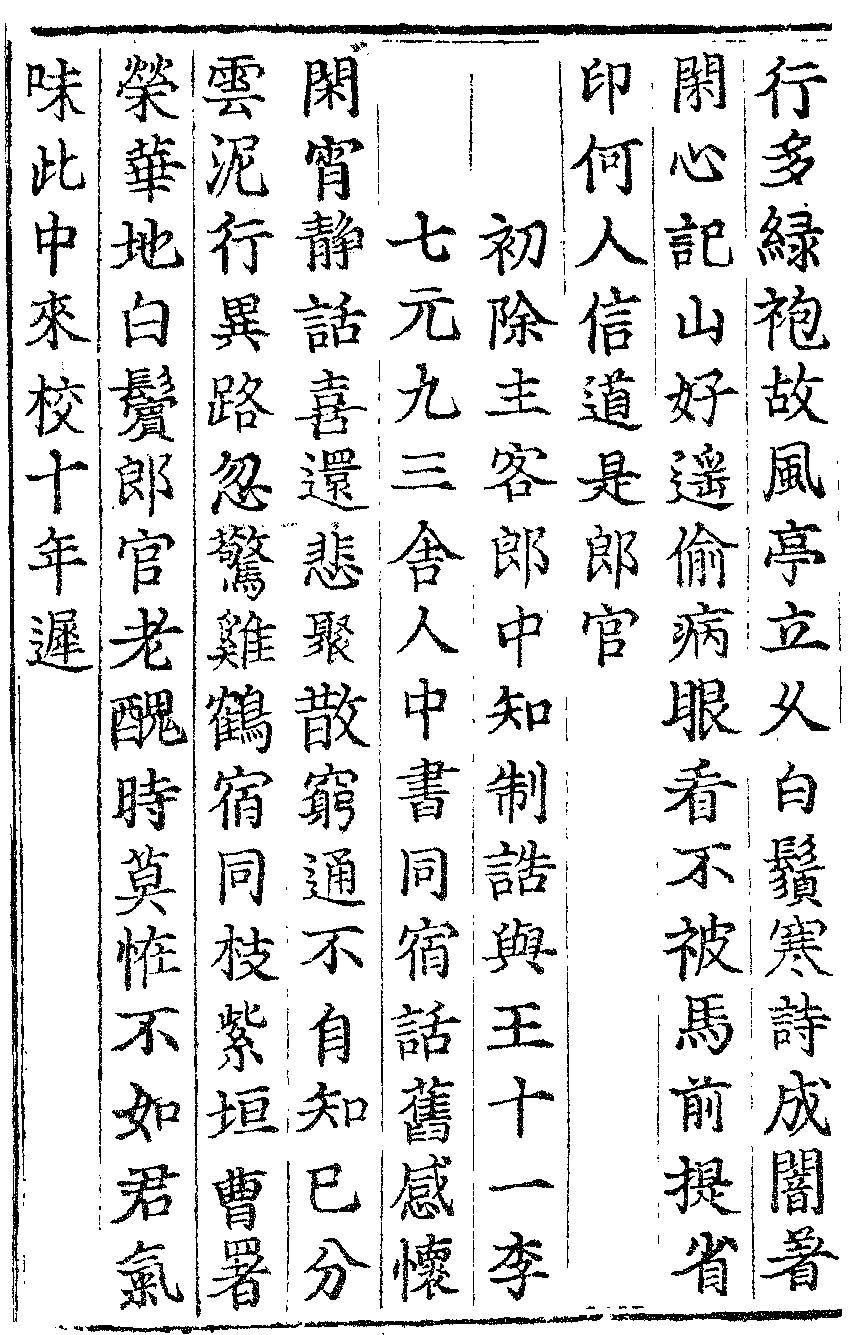 行多緑袍故風亭立久白鬚寒詩成闇著
閑心記山好遥偷病眼看不被馬前提省
印何人信道是郎官
初除主客郎中知制誥與王十一李
七元九三舎人中書同宿話舊感懷
閑宵静話喜還悲聚散窮通不自知已分
雲泥行異路忽驚雞鶴宿同枝紫垣曹署
榮華地白鬢郎官老醜時莫恠不如君氣
味此中來校十年遲